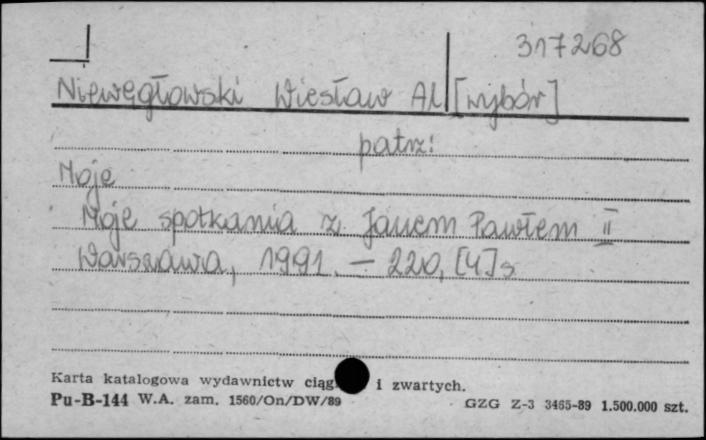 317268
Niewęgłowski Wiesław Al [wybór]
patrz:
Moje
Moje spotkania z Janem Pawłem II
Warszawa, 1991. — 220, [4] s
Karta katalogowa wydawnictw ciąg. i zwartych.
Pu-B-144 W.A. zam. 1560/On/DW/89 GZG Z-3 3465-89 1.500.000 szt.